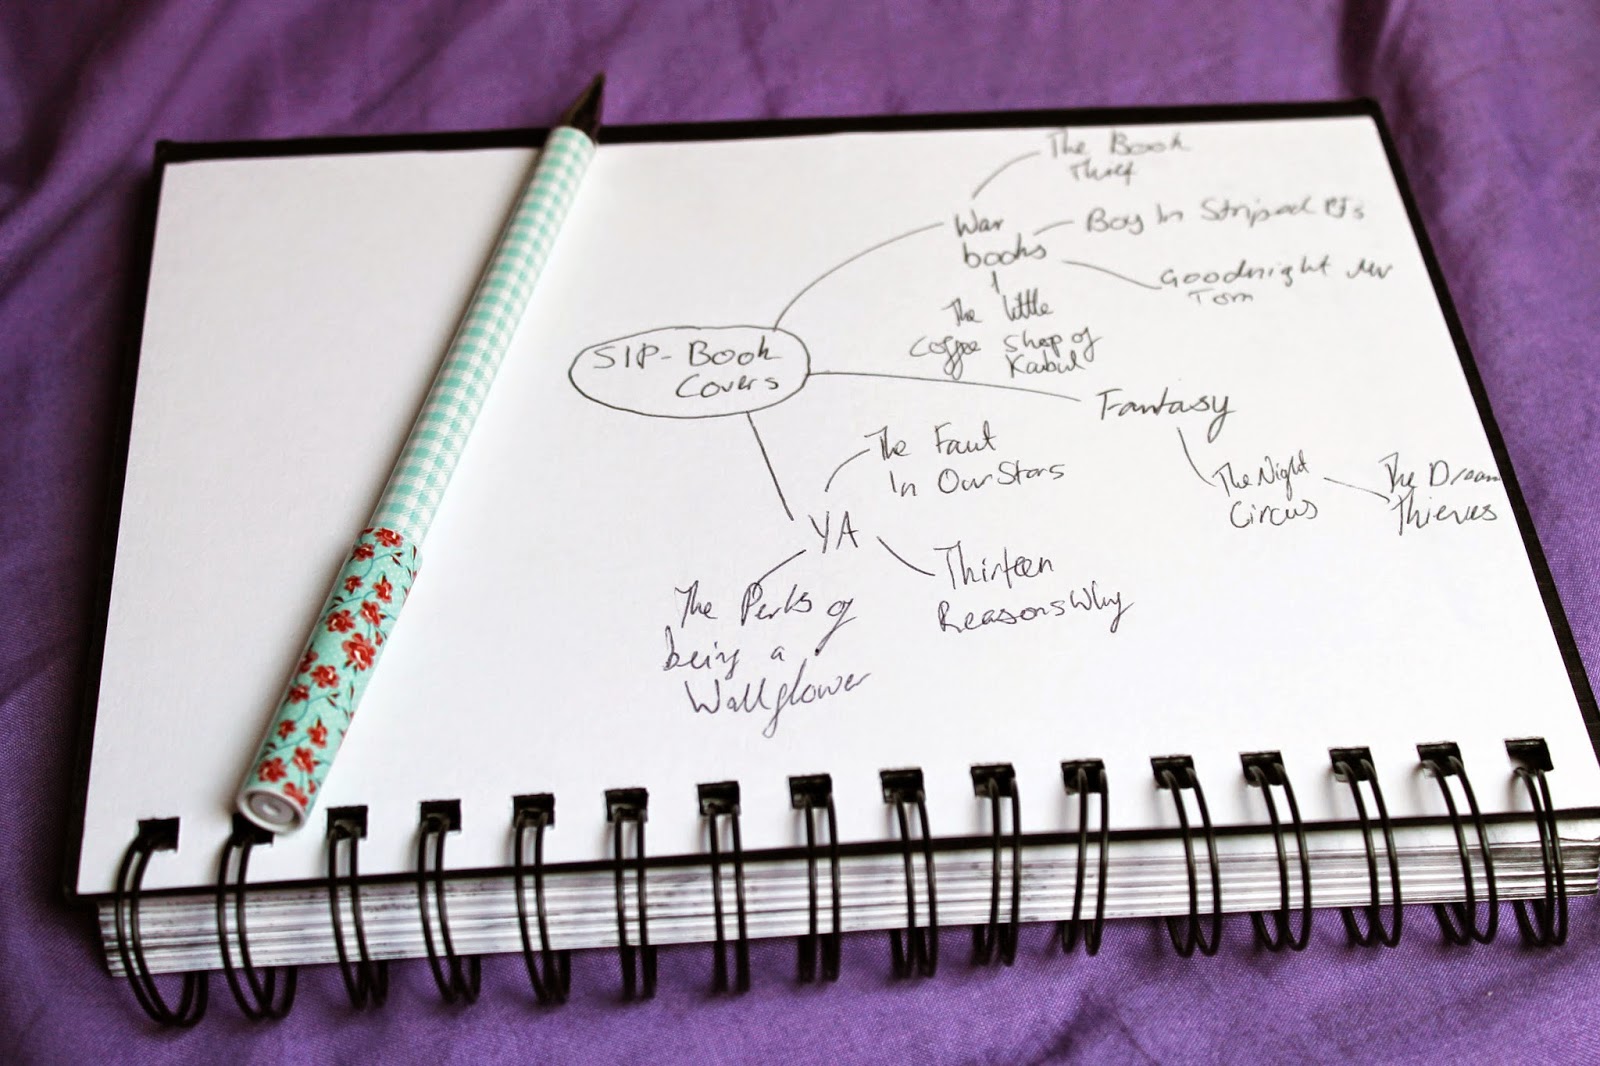 The Book
Thief
War
books
Boy In Striped PJs
Goodnight Mr
Tom
The little
coffee shop of
Kabul
SIP-Book
Covers
Fantasy
The Night
Circus
The Dream
Thieves
The Faut
In Our Stars
YA
Thirteen
Reasons Why
The Perks of
being a
Wallflower